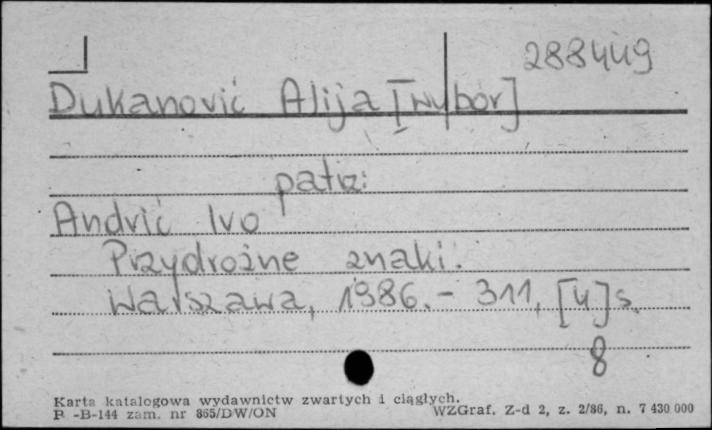 288449
Dukanović Alija [wybór]
patrz:
Andrić Ivo
Przydrożne znaki.
Warszawa, 1986. - 311, [4] s.
8
Karta katalogowa wydawnictw zwartych i ciągłych.
P -B-144 zam. nr 865/DW/ON WZGraf. Z-d 2, z. 2/86, n. 7 430 000